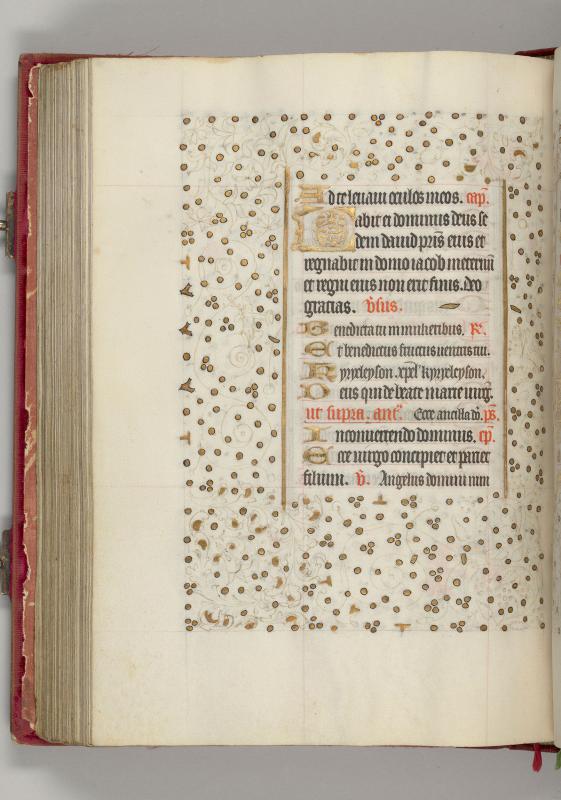 Ad te leuaui oculos meos. cap.
Dabit ei dominus deus se
dem dauid pris eius et
regnabit in domo iacob in eternu
et regni eius non erit finis. deo
gracias. v̉sus.
Benedicta tu in mulieribus. R̉.
Et benedictus fructus uentris tui.
Kyryeleyson. xpel kyryeleyson.
Deus qui de beate marie uirg.
ut supra. ant. Ecce ancilla dñ. ps.
In conuertendo dominus. cp.
Ecce uirgo concipiet et pariet
filium. v̉. Angelus domini nun